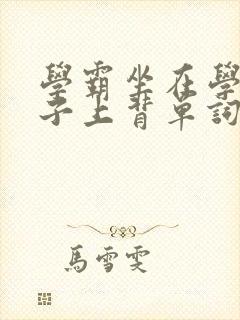 學霸坐在學
子上背單詞
馬雪雯